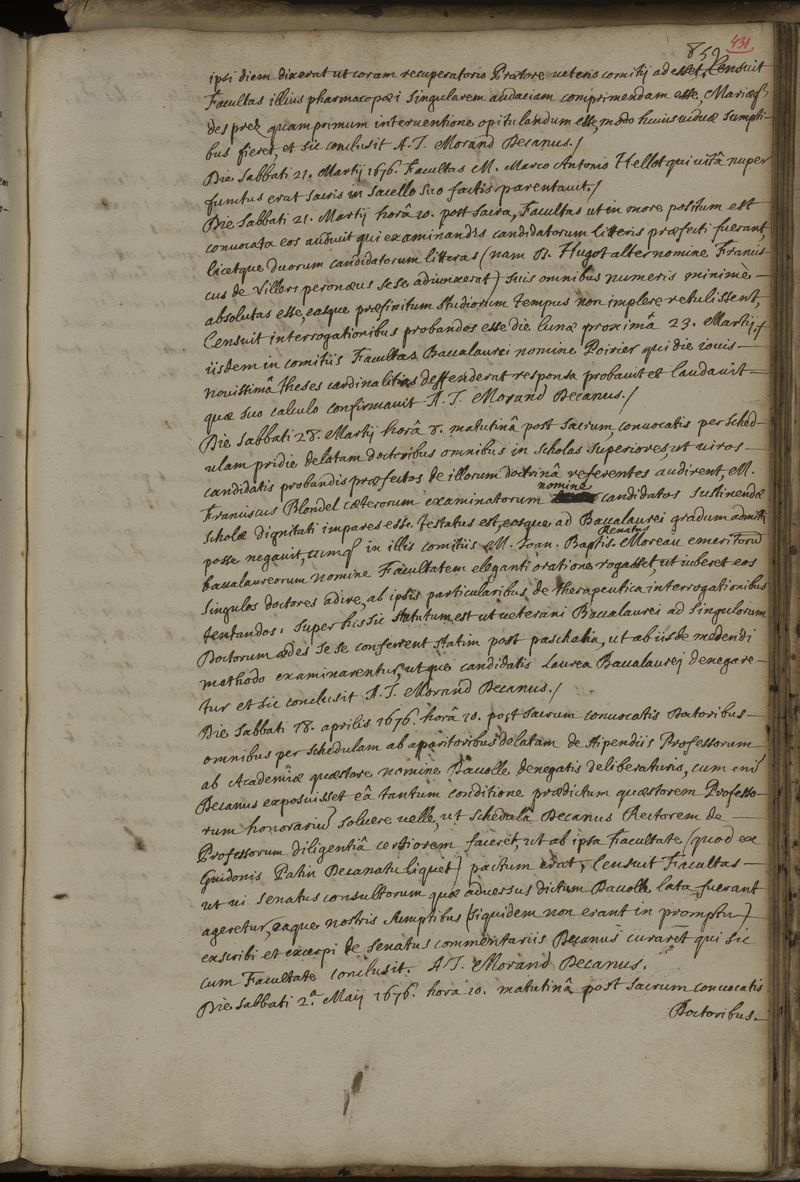 431
859
ipsi diem dixerat ut coram recuperatorio Prætore veteris comitij adesset, Censuit
Facultas illius pharmacopœi singularem audaciam comprimendam esse, Mariæq
des prez quamprimum interventione opitulandum esse, modo huius viduæ sumpti-
bus fieret, et sic conclusit A. J. Morand Decanus./
Die Sabbati 21. Martij 1676. Facultas M. Marco Antonio Hellot qui vitâ nuper
functus erat sacris in sacello suo factis parentavit./
Die Sabbati 21. Martij horâ 10. post sacra, Facultas ut in more positum est
convocata eos audivit qui examinandis candidatorum litteris præfecti fuerant,
licetque duorum candidatorum litteras (nam D. Hugot alter nomine Francis
cus de Villers peronæus sese adiunxerat) suis omnibus numeris minimè –
absolutas esse, easque præfinitum studiorum tempus non implere retulissent,
Censuit interrogationibus probandos esse die lunæ proximâ 23. Martij,
iisdem in comitiis Facultas Baccalaurei nomine Poirier qui die iovis –
novissimâ theses cardinalitias deffenderat responsa probavit et laudavit –
quæ suo calculo confirmavit A. J. Morand Decanus./
Die Sabbati 28. Martij horâ 8. matutinâ post sacrum, convocatis per sched-
ulam pridie delatam doctoribus omnibus in scholas superiores, ut viros –
candidatis probandis præfectos de illorum doctrinâ referentes audirent, M.
Franciscus Blondel cæterorum examinatorum nomine candidatos sustinendæ
scholæ dignitati impares esse testatus est, eosque ad Baccalaurei gradum admitti
posse negavit, cumq in illis comitiis M. Joan. Baptis. Renatus Moreau emeritorū
baccalaureorum nomine Facultatem eleganti oratione rogasset, ut iuberet eos
singulos doctores adire, ab ipsis particularibus de therapeutica interrogationibus
tentandos, super his sic statutum est ut veterani Baccalaurei ad singulorum
Doctorum ædes sese conferrent statim post paschalia, ut ab iisdē medendi
methodo examinarentur, utque candidatis Laurea Baccalaurej denegare-
tur et sic conclusit A. J. Morand Decanus./
Die Sabbati 18. aprilis 1676. horâ 10. post sacrum convocatis Doctoribus –
omnibus per schedulam ab aparitoribus delatam de stipendiis Professorum
ab Academiæ quæstore nomine Davolle denegatis deliberaturis, cum eni
Decanus exposuisset eâ tantum conditione prædictum quæstorem Professo-
rum honorariū solvere velle, ut schedulâ Decanus Rectorem de –
Professorum diligentiâ certiorem faceret, ut ab ipsa Facultate (quod ex
Guidonis Patin Decanatu liquet) pactum erat, Censuit Facultas –
ut vi senatus consultorum quæ adversus dictum Davolle lata fuerant
ageretur, eaque nostris sumptibus (siquidem non erant in promptu)
exscribi et excerpi de senatus commentariis Decanus curaret qui sic
cum Facultate conclusit. A. J. Morand Decanus.
Die Sabbati 2.a Maij 1676. hora 10. matutinâ post sacrum convocatis
Doctoribus –